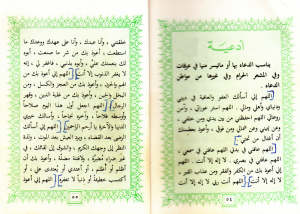 أدعية
يناسب الدعاء بها أو ماتيسر منها في عرفات
وفي المشعر الحرام وفي غيرها من مواطن
الدعاء
اللهم إني أسألك العفو والعافية في ديني
ودنياي وأهلي ومالي، اللهم استر عوراتي، وآمن
روعاتي، اللهم احفظني من بين يدي ومن خلفي،
وعن يميني وعن شمالي ومن فوقي، وأعوذ بعظمتك
أن أغتال من تحتي
اللهم عافني في بدني، اللهم عافني في سمعي،
اللهم عافني في بصري، لا إله إلا أنت، اللهم
إني أعوذ بك من الكفر والفقر ومن عذاب القبر،
لا إله إلا أنت، اللهم أنت ربي لا إله إلا أنت
٥٤
خلقتني، وأنا عبدك، وأنا على عهدك ووعدك ما
استطعت، أعوذ بك من شر ما صنعت، أبوء
لك بنعمتك علي، وأبوء بذنبي، فاغفر لي، إنه
لا يغفر الذنوب إلا أنت، اللهم إني أعوذ بك
من الهم والحزن، وأعوذ بك من العجز والكسل، ومن
البخل والجبن، وأعوذ بك من غلبة الدين وقهر
الرجال، اللهم اجعل أول هذا اليوم صلاحاً
وأوسطه فلاحاً وآخره نجاحاً، وأسألك خيري
الدنيا والآخرة يا أرحم الراحمين، اللهم إني أسألك
الرضى بعد القضاء، وبرد العيش بعد الموت، ولذة
النظر إلى وجهك الكريم، والشوق إلى لقائك، في
غير ضراء مضرة، ولا فتنة مضلة، وأعوذ بك أن
أظلم أو أظلم، أو أعتدي أو يعتدى علي، أو
أكتسب خطيئة أو ذنباً لا تغفره، اللهم إني أعوذ
٥٥